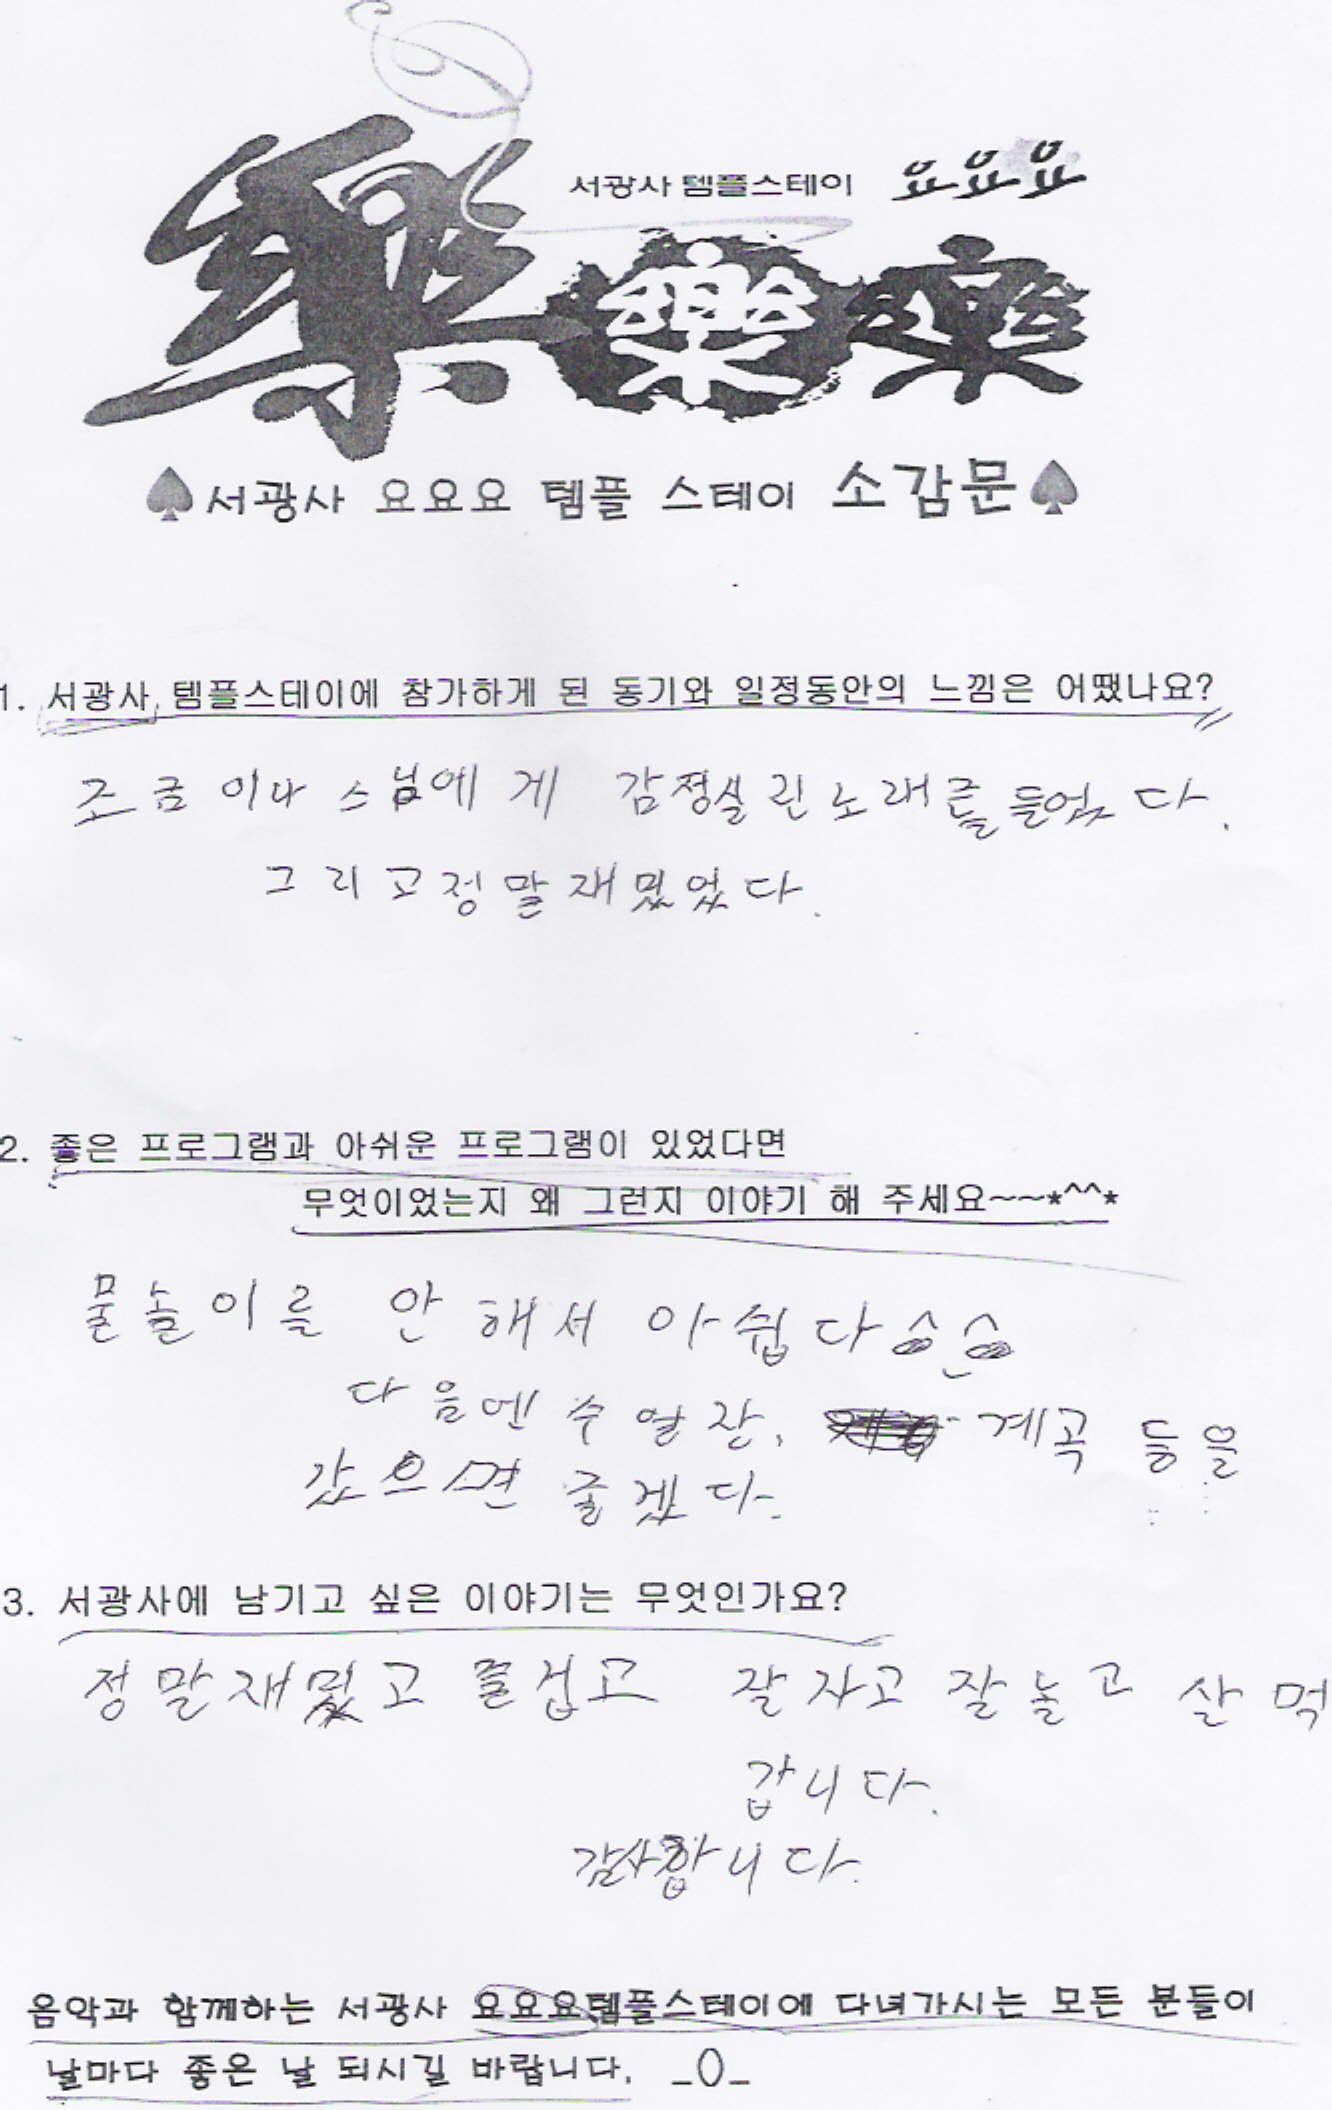 樂
서광사 템플스테이 요요요
樂 樂
서광사 요요요 템플 스테이 소감문
1. 서광사 템플스테이에 참가하게 된 동기와 일정동안의 느낌은 어땠나요?
조금이나 스님에게 감정실린노래를들었다.
그리고정말재밌었다.
2. 좋은 프로그램과 아쉬운 프로그램이 있었다면
무엇이었는지 왜 그런지 이야기 해 주세요~~*^^*
물놀이를 안 해서 아쉽다
다음엔 수영장, 계곡 등을
갔으면 좋겠다.
3. 서광사에 남기고 싶은 이야기는 무엇인가요?
정말재밌고 즐겁고 잘자고 잘놀고 살 먹
갑니다.
감사합니다.
음악과 함께하는 서광사 요요요템플스테이에 다녀가시는 모든 분들이
날마다 좋은 날 되시길 바랍니다. _0_